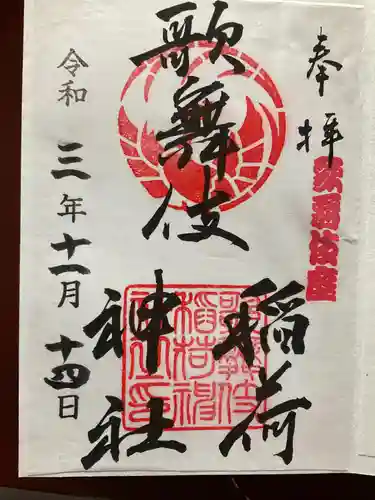 奉拝
歌舞伎座
歌舞伎
稲荷
神社
令和三年十一月十四日